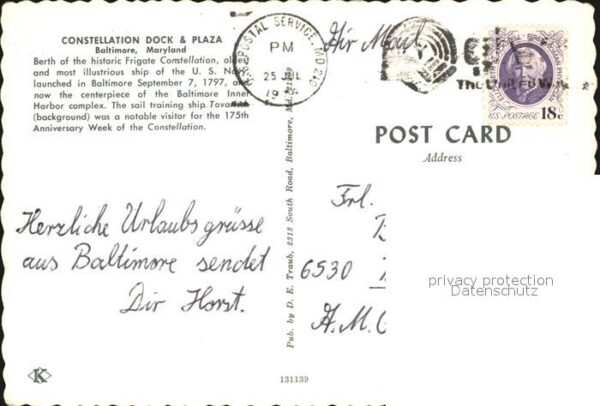 CONSTELLATION DOCK & PLAZA
Baltimore, Maryland
Berth of the historic Frigate Constellation, oldest
and most illustrious ship of the U. S. Navy
launched in Baltimore September 7, 1797, and
now the centerpiece of the Baltimore Inner
Harbor complex. The sail training ship
(background) was a notable visitor for the 175th
Anniversary Week of the Constellation.
U.S. POSTAL SERVICE, MD 210
PM
25 JUL
Air Mail
U.S. POSTAGE 18c
POST CARD
Address
Herzliche Urlaubsgrüsse
aus Baltimore sendet
Dir Horst.
Pub. by D. E. Traub, 2313 South Road, Baltimore, Md.
Frl.
6530
privacy protection
Datenschutz
K
131139